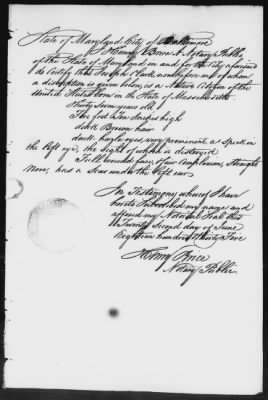 State of Maryland City of Baltimore
I Henry Brice A Notary Public
of the State of Maryland in and for the City aforesaid
do Certify that Joseph Clark now before me of whom
a discription is given below, is a Native Citizen of the
United States born in the State of Massachusetts
thirty Seven years old
Five feet Ten Inches high
dark Brown hair
dark hazle eyes very prominent a Speck in
the left eye, the Sight of which is distroyed
Full round face, fair Complexion, straight
Nose, has a Scar under the left ear
In Testimony whereof I have
hereto Subscribed my name and
affixed my Notarial Seal this
Twenty Second day of June
Eighteen hundred thirty Five
Henry Brice
Notary Public